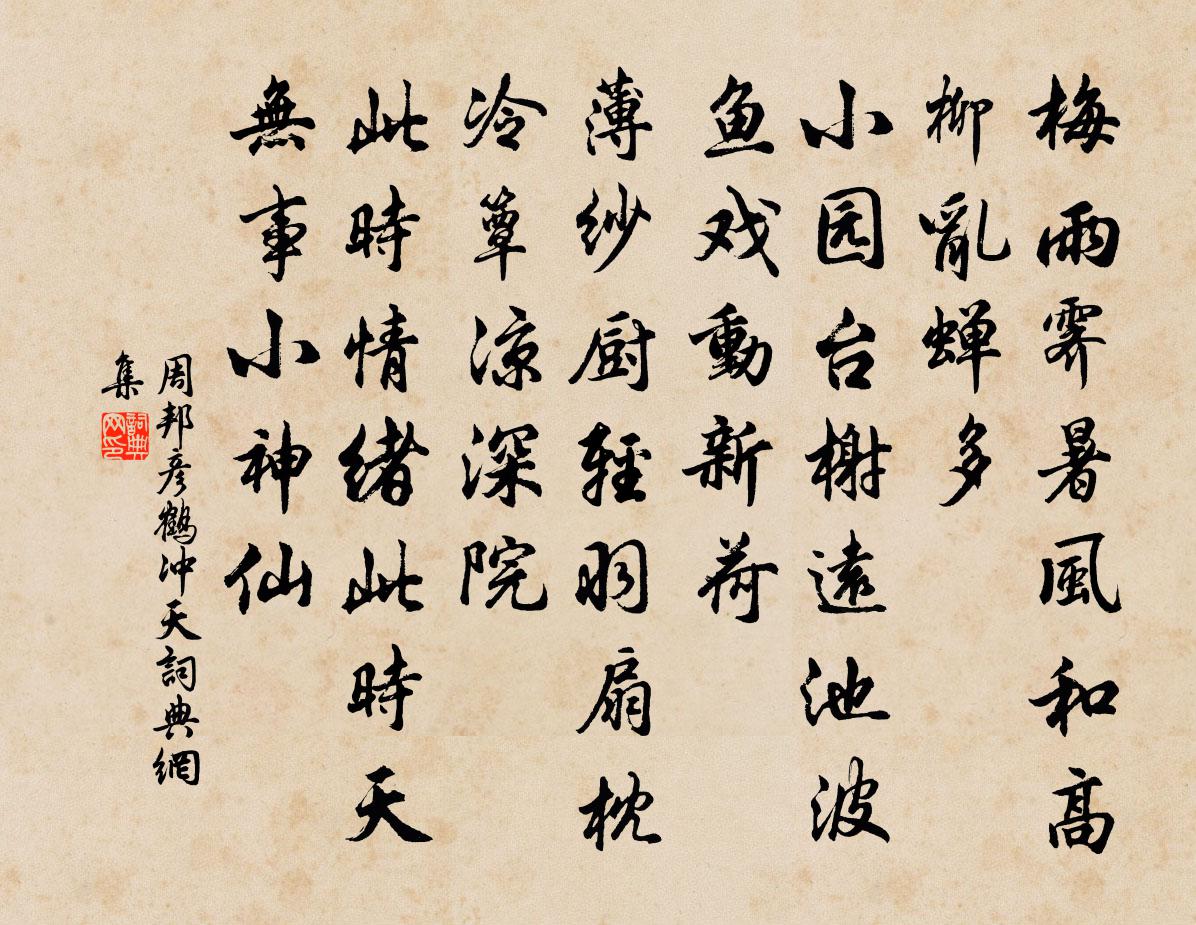 梅雨霽暑風和高
柳亂蝉多
小园台榭遠池波
鱼戏動新荷
薄纱厨輕羽扇枕
冷簟凉深院
此時情緒此時天
無事小神仙
周邦彦鶴冲天詞典網
集
詞典
网印